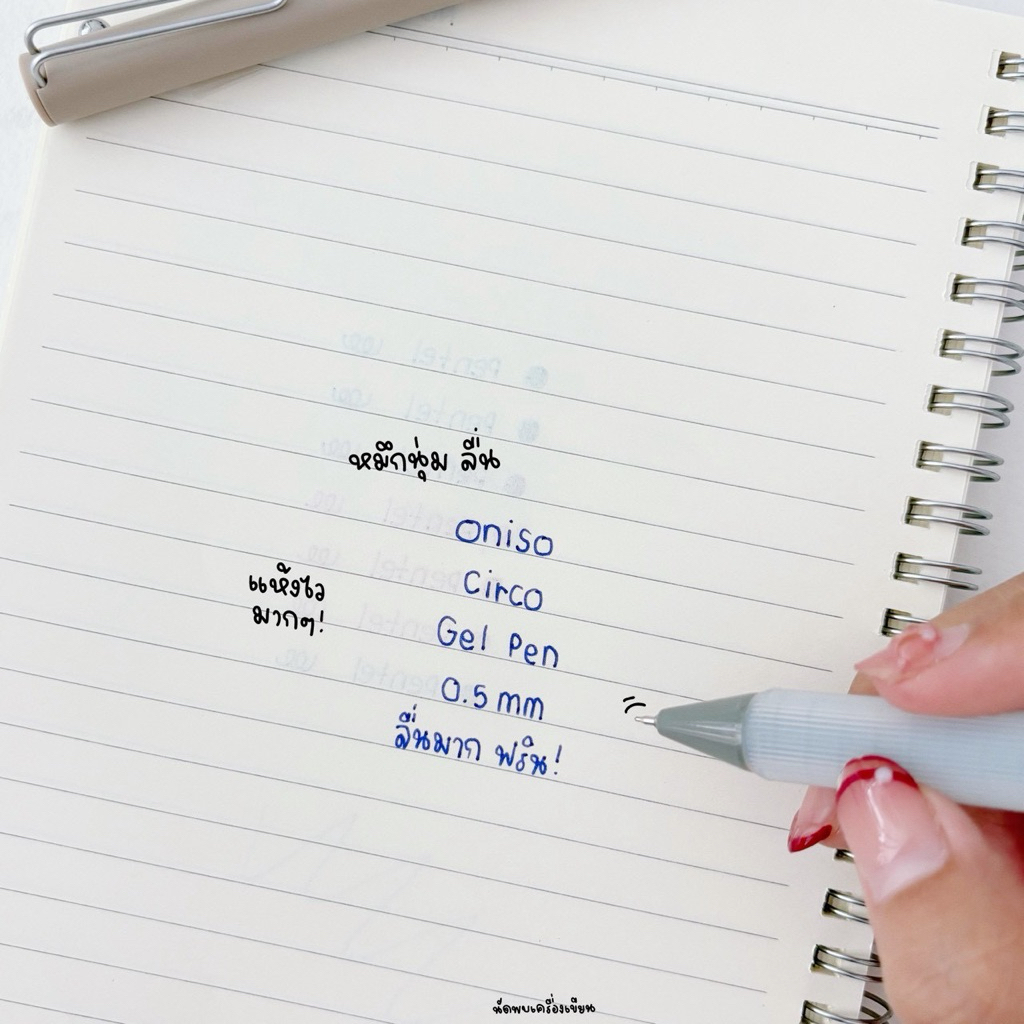 หมึกนุ่ม ลื่น
oniso
Circo
แห้งไว
มากๆ!
Gel Pen
0.5 mm
ลื่นมาก ฟริน!
นัดพบเครื่องเขียน